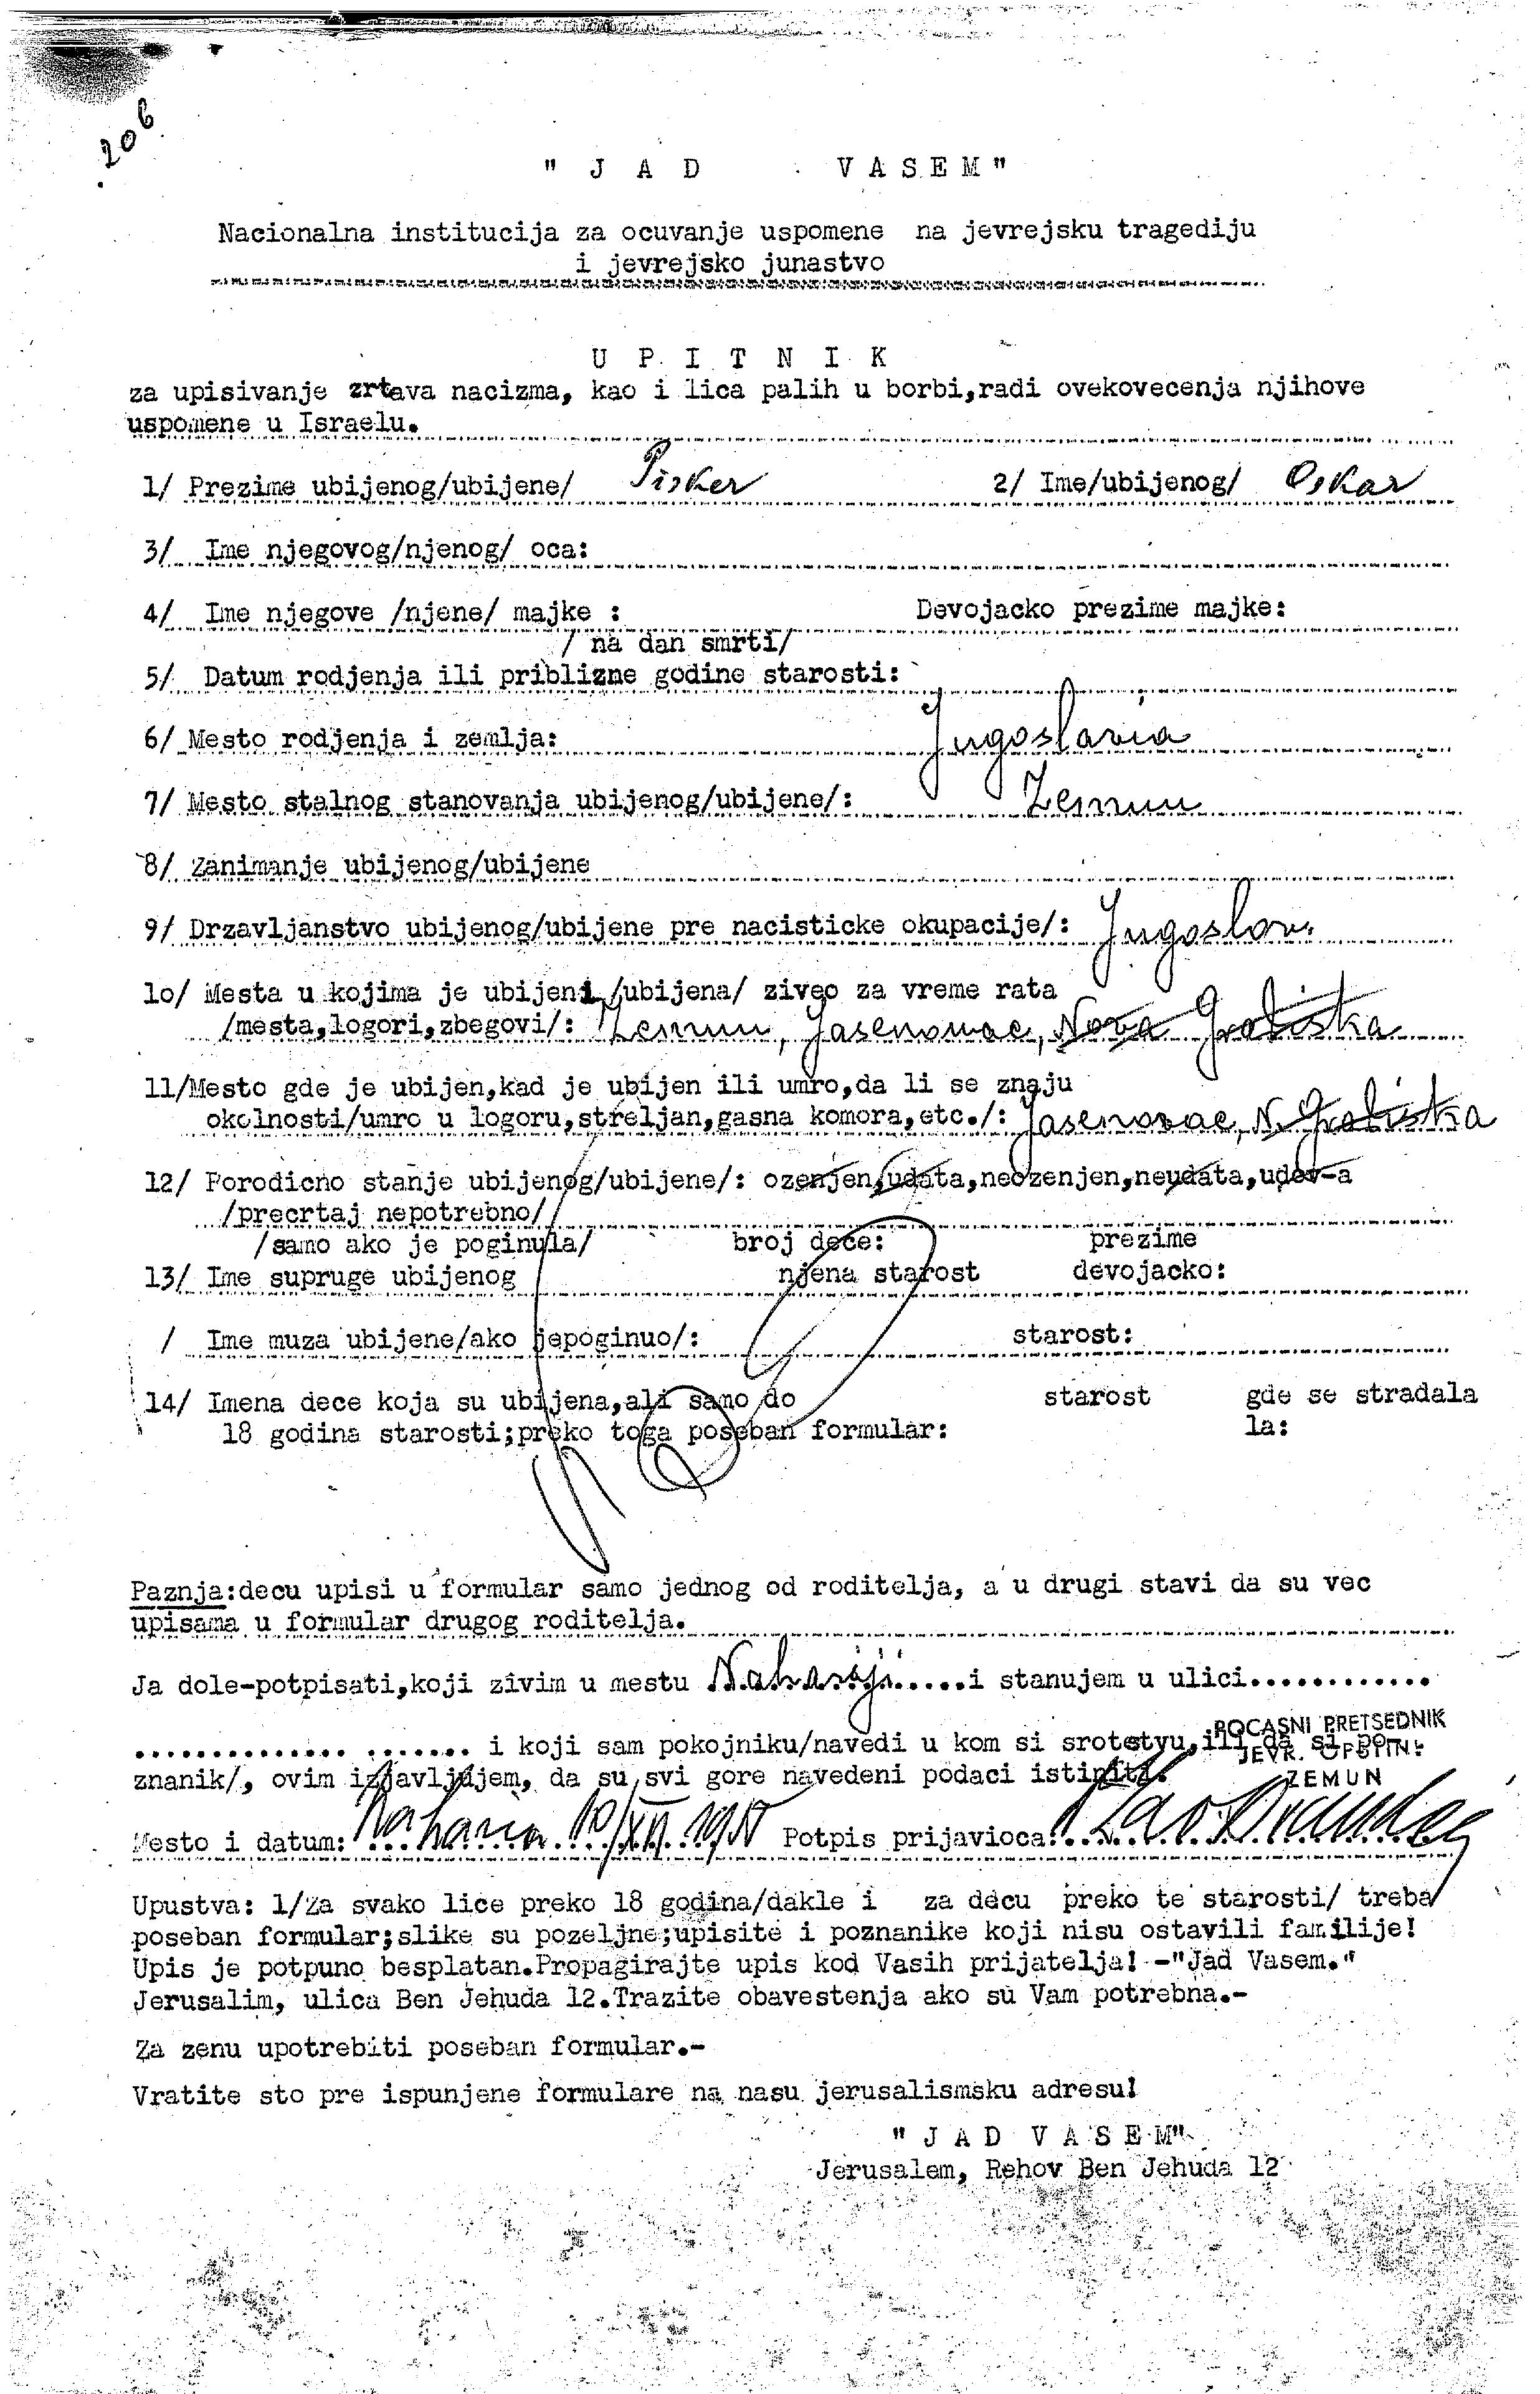 206
" J A D V A S E M "
Nacionalna institucija za ocuvanje uspomene na jevrejsku tragediju
i jevrejsko junastvo
U P I T N I K
za upisivanje zrtava nacizma, kao i lica palih u borbi,radi ovekovecenja njihove
uspomene u Israelu.
1/ Prezime ubijenog/ubijene/ Pisker 2/ Ime/ubijenog/ Oskar
3/ Ime njegovog/njenog/ oca:
4/ Ime njegove /njene/ majke : Devojacko prezime majke:
/ na dan smrti/
5/ Datum rodjenja ili priblizne godine starosti:
6/ Mesto rodjenja i zemlja: Jugoslavia
7/ Mesto stalnog stanovanja ubijenog/ubijene/: Zemun
8/ Zanimanje ubijenog/ubijene
9/ Drzavljanstvo ubijenog/ubijene pre nacisticke okupacije/: Jugoslov.
lo/ Mesta u kojima je ubijeni /ubijena/ ziveo za vreme rata
/mesta,logori,zbegovi/: Zemun, Jasenovac, Nova Gradiska
11/Mesto gde je ubijen,kad je ubijen ili umro,da li se znaju
okolnosti/umro u logoru,streljan,gasna komora,etc./: Jasenovac, N. Gradiska
12/ Porodicno stanje ubijenog/ubijene/: ozenjen,udata,neozenjen,neudata,udov-a
/precrtaj nepotrebno/
/samo ako je poginula/ broj dece: prezime
13/ Ime supruge ubijenog njena starost devojacko:
/ Ime muza ubijene/ako jepoginuo/: starost:
14/ Imena dece koja su ubijena,ali samo do starost gde se stradala
18 godina starosti;preko toga poseban formular: la:
Paznja:decu upisi u formular samo jednog od roditelja, a u drugi stavi da su vec
upisama u formular drugog roditelja.
Ja dole-potpisati,koji zivim u mestu Nahariji.....i stanujem u ulici.............
.............. ....... i koji sam pokojniku/navedi u kom si srotstvu,ili da si po-
POCASNI PRETSEDNIK
JEVR. OPSTINE
ZEMUN
znanik/, ovim izjavljujem, da su svi gore navedeni podaci istiniti.
Mesto i datum: Naharia 10/XII 1955 Potpis prijavioca:
Upustva: 1/Za svako lice preko 18 godina/dakle i za decu preko te starosti/ treba
poseban formular;slike su pozeljne;upisite i poznanike koji nisu ostavili familije!
Upis je potpuno besplatan.Propagirajte upis kod Vasih prijatelja! -"Jad Vasem."
Jerusalim, ulica Ben Jehuda 12.Trazite obavestenja ako su Vam potrebna.-
Za zenu upotrebiti poseban formular.-
Vratite sto pre ispunjene formulare na nasu jerusalismsku adresu!
" J A D V A S E M"
Jerusalem, Rehov Ben Jehuda 12